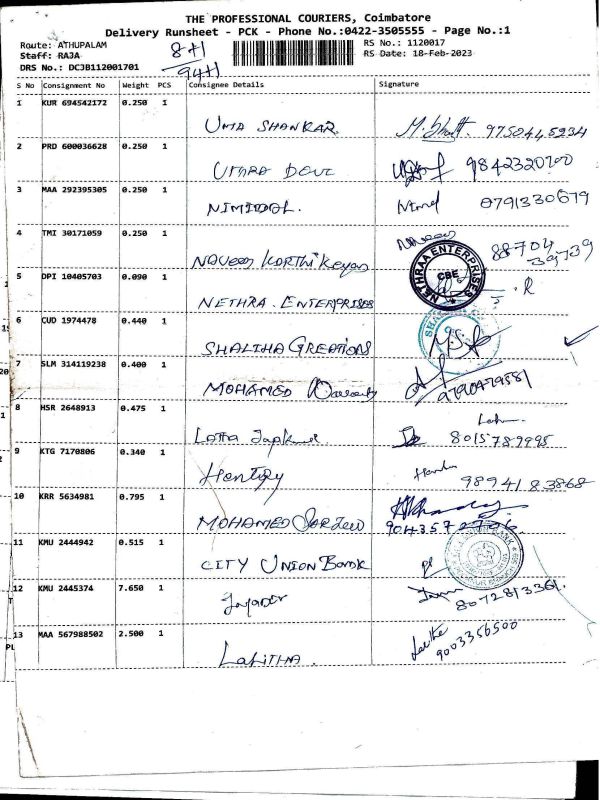 THE PROFESSIONAL COURIERS, Coimbatore
Delivery Runsheet - PCK - Phone No.:0422-3505555 - Page No.:1
Route: ATHUPALAM
Staff: RAJA
DRS No.: DCJB112001701
8+1
94+1
RS No.: 1120017
RS Date: 18-Feb-2023
S No Consignment No Weight PCS Consignee Details Signature
1 KUR 694542172 0.250 1
UMA SHANKAR.
2 PRD 600036628 0.250 1
UTHRA DEVI
3 MAA 292395305 0.250 1
4 TMI 30171059 0.250 1
Naveen Karthikeyan
88704
39739
5 DPI 10405703 0.090 1
NETHRA. ENTERPRISES
NETHRAA ENTERPRISES
CBE
6 CUD 1974478 0.440 1
SHALIHA CREATIONS
7 SLM 314119238 0.400 1
MOHAMED
9790479581
8 HSR 2648913 0.475 1
Latha
8015789995
9 KTG 7170806 0.340 1
Hentry
98941 83868
10 KRR 5634981 0.795 1
MOHAMED
11 KMU 2444942 0.515 1
CITY UNION Bank
12 KMU 2445374 7.650 1
8072813361.
13 MAA 567988502 2.500 1
LALITHA.
9003356500